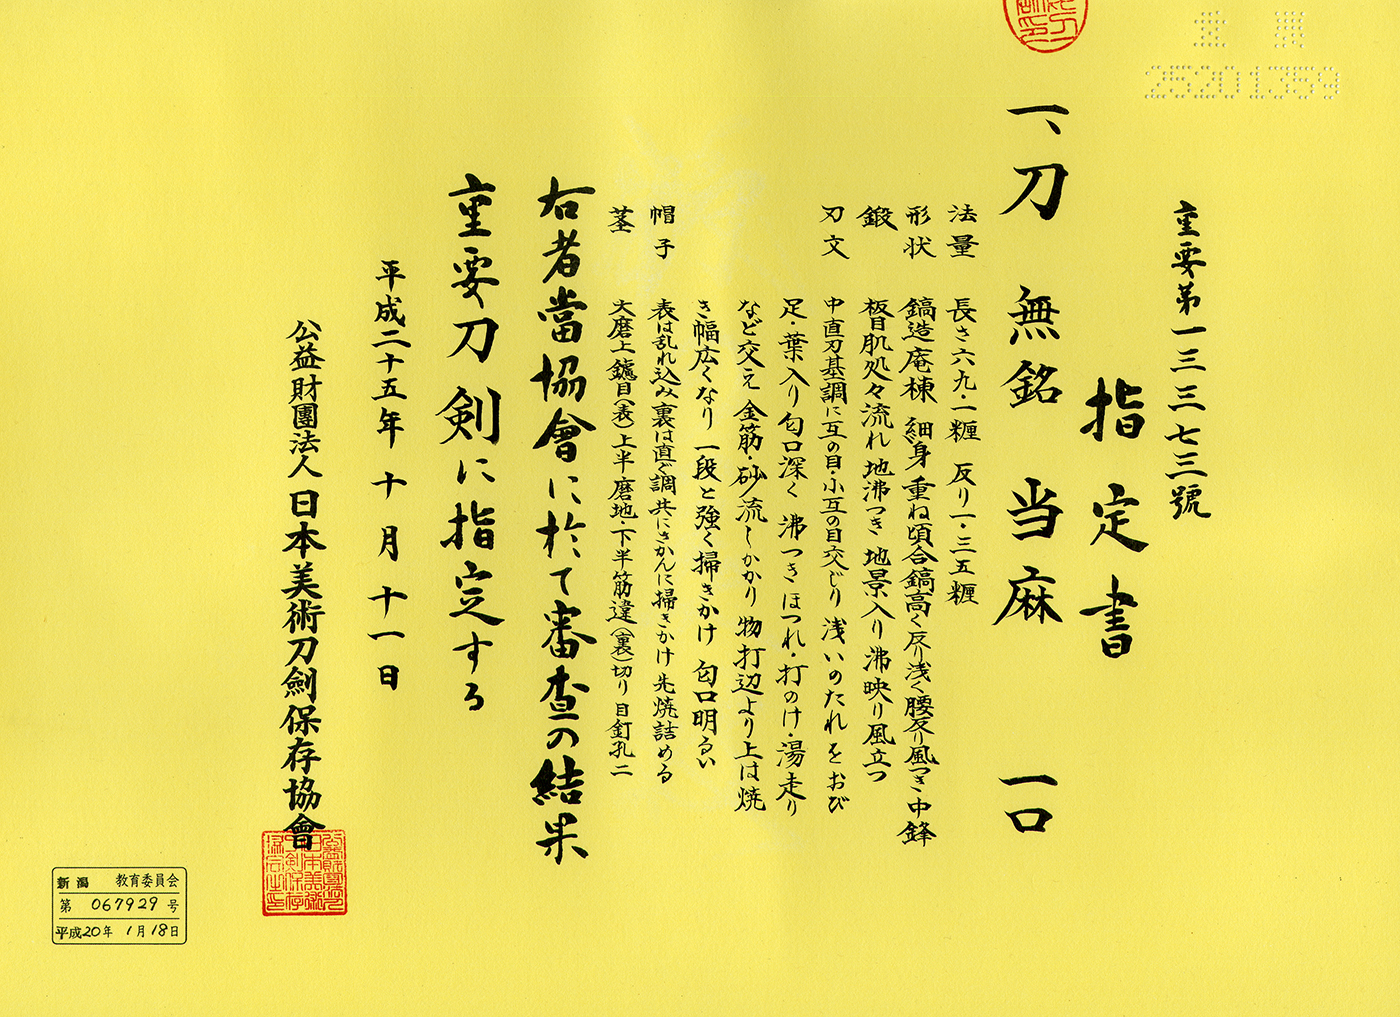 重要第一三三七三號
指定書
一、刀 無銘 当麻 一口
法量 長さ六九・一糎 反り一・三五糎
形状 鎬造庵棟 細身 重ね頃合鎬高く反り浅く腰反り風つき中鋒
鍛 板目肌処々流れ 地沸つき 地景入り 沸映り風立つ
刃文 中直刃基調に互の目・小互の目交じり 浅いのたれをおび
足・葉入り 匂口深く 沸つき ほつれ・打のけ・湯走り
など交え 金筋・砂流しかかり 物打辺より上は焼
き幅広くなり 一段と強く掃きかけ 匂口明るい
帽子 表は乱れ込み 裏は直ぐ調 共にさかんに掃きかけ 先焼詰める
茎 大磨上 鑢目(表)上半磨地・下半筋違(裏)切り 目釘孔二
右者當協會に於て審査の結果
重要刀剣に指定する
平成二十五年十月十一日
公益財團法人日本美術刀劍保存協會
25201359
新潟 教育委員会
第 067929 号
平成20年 1月18日